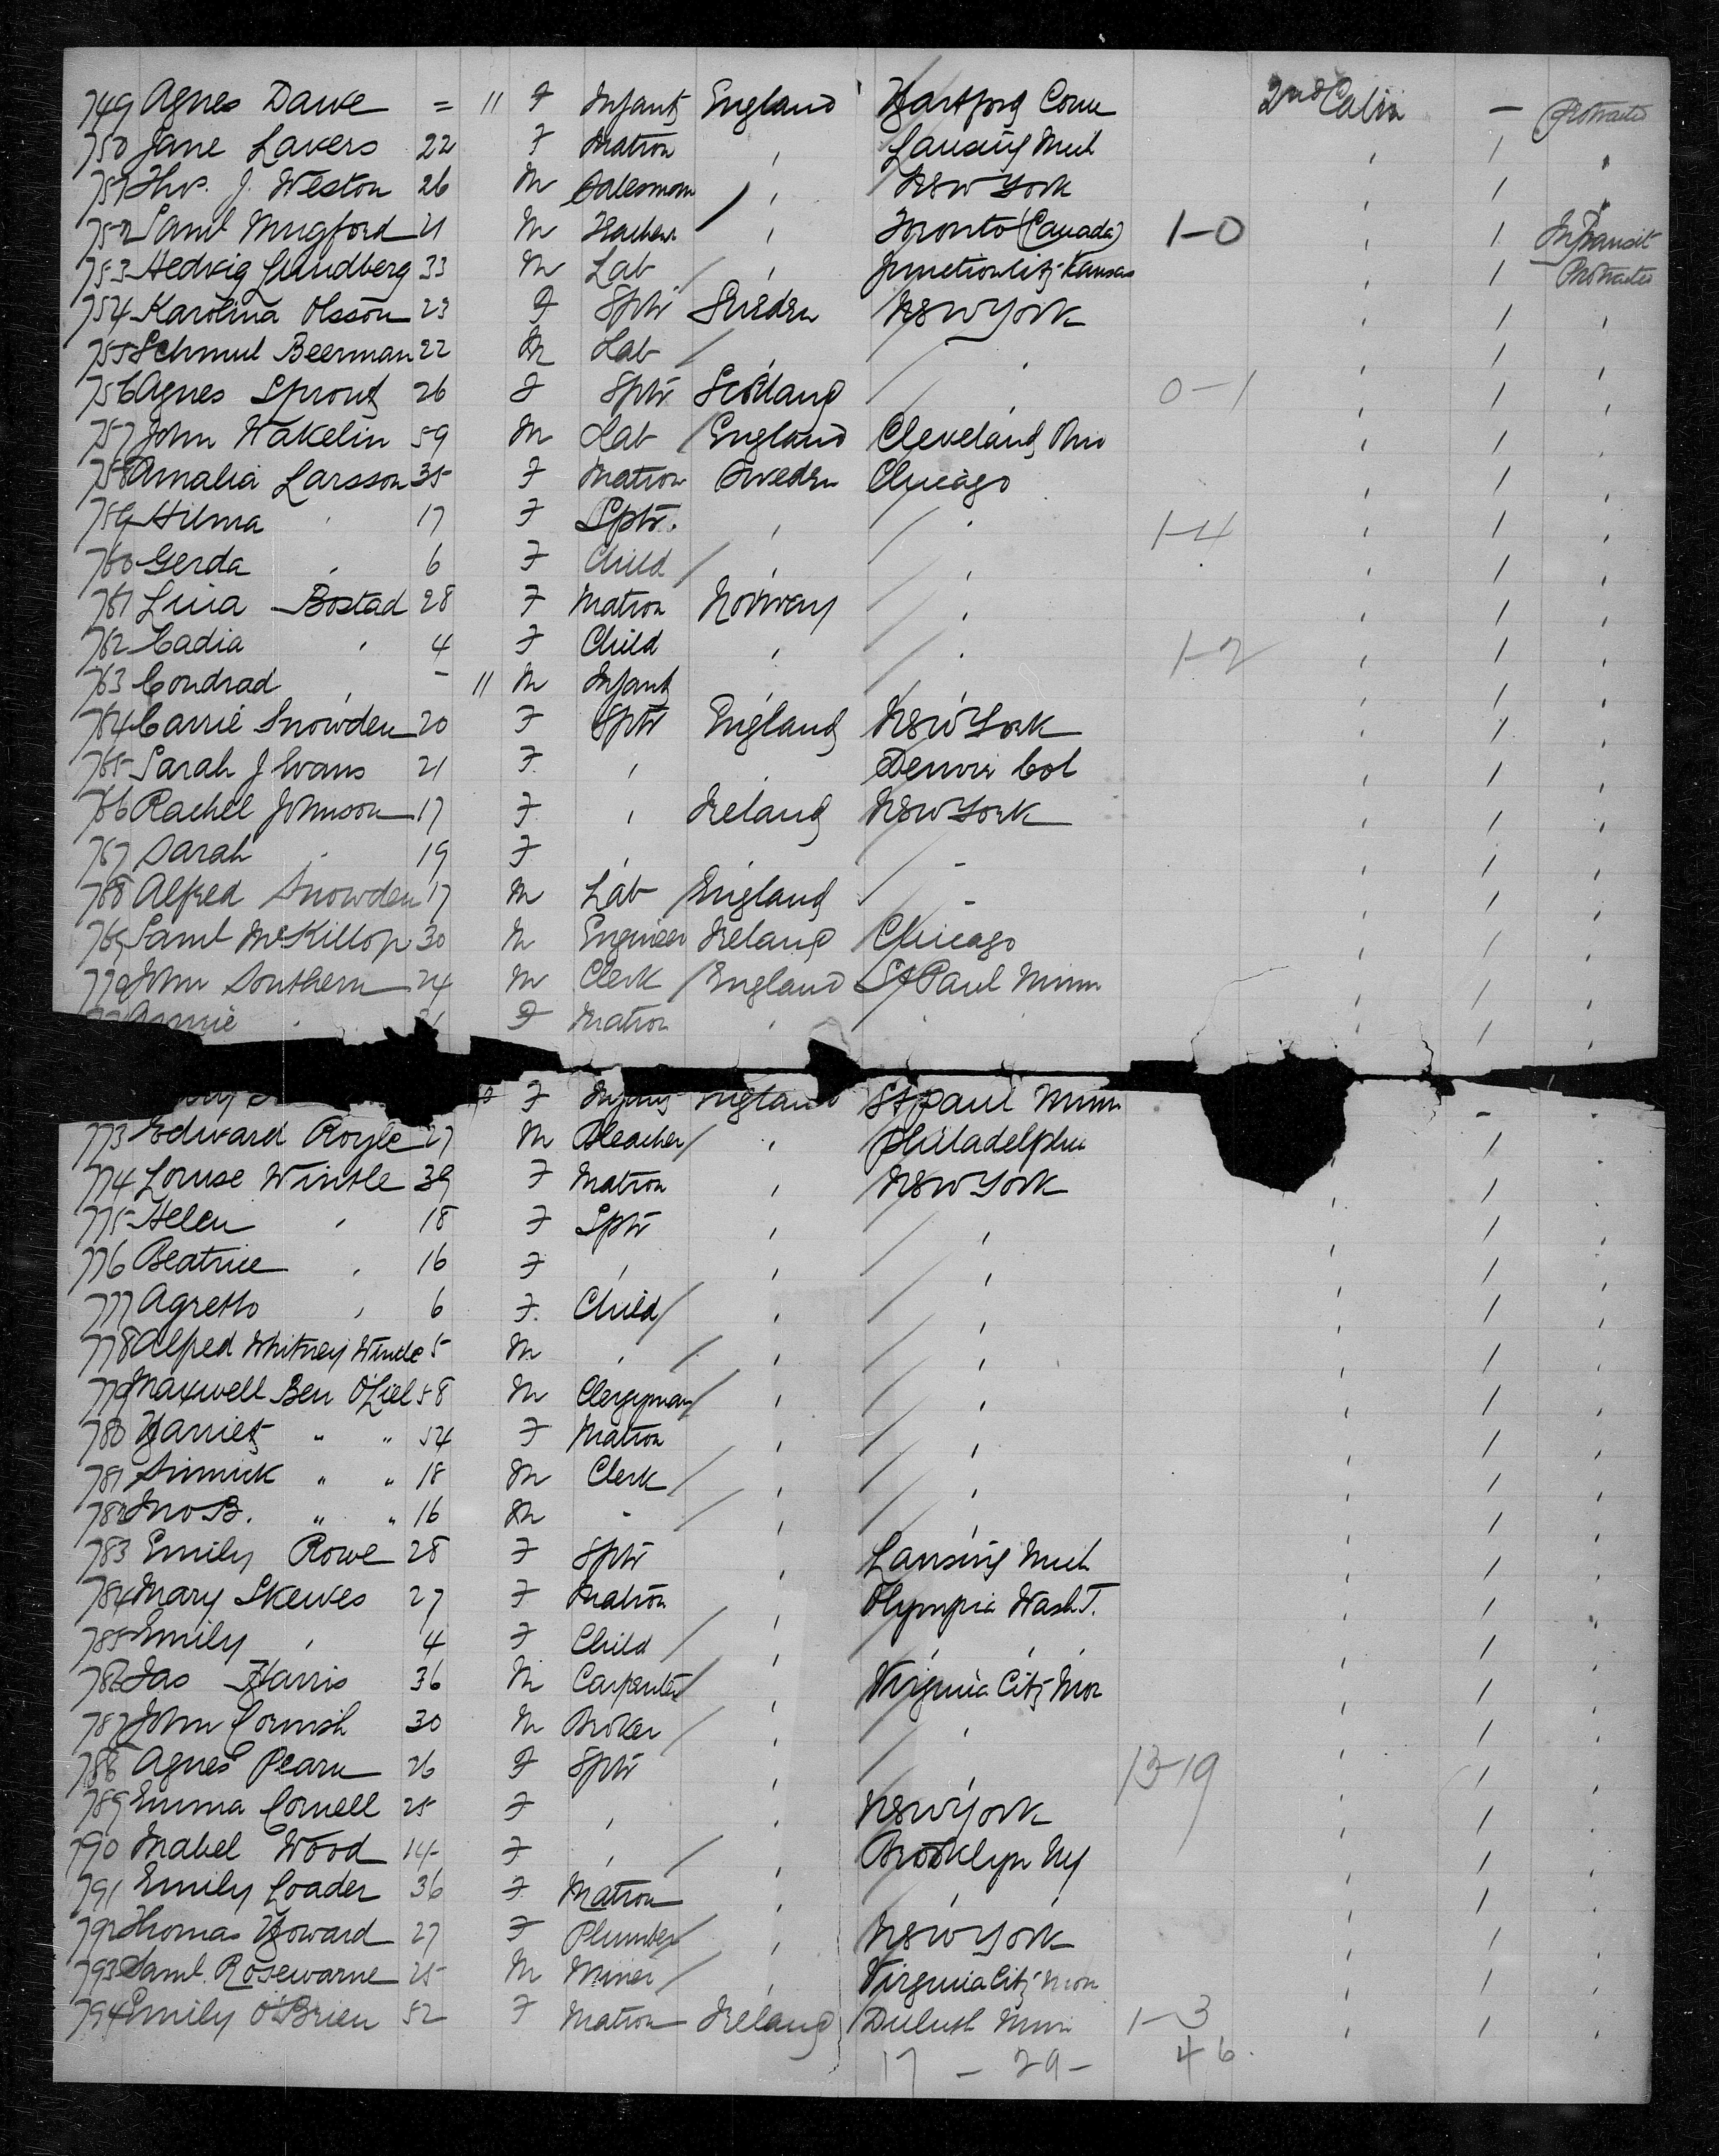 749 Agnes Dawe = 11 F Infant England Hartford Conn 2nd Cabin — Protracted
750 Jane Lavers 22 F Matron , Lansing Mich , / "
751 Thos. J. Weston 26 M Salesman / , New York , / "
752 Saml Mugford 21 M Teacher , Toronto (Canada) 1-0 , / In Transit
753 Hedvig Lundberg 33 M Lab / , Junction City Kansas , / Protracted
754 Karolina Olsson 23 F Sptr Sweden New York , / ,
755 Schmul Beerman 22 M Lab / , , , / ,
756 Agnes Sprout 26 F Sptr Scotland / , 0-1 , / ,
757 John Wakelin 59 M Lab / England Cleveland Ohio , / ,
758 Amalia Larsson 35 F Matron Sweden Chicago , / ,
759 Hilma , 17 F Sptr. , / , 1-4 , / ,
760 Gerda , 6 F Child / , / , , / ,
761 Lina Bostad 28 F Matron Norway / , , / ,
762 Cadia , 4 F Child , / , 1-2 , / ,
763 Condrad , - 11 M Infant , / , , / ,
764 Carrie Snowden 20 F Sptr England New York , / ,
765 Sarah J Evans 21 F , , Denver Col , / ,
766 Rachel Johnson 17 F , Ireland New York , / ,
767 Sarah , 19 F , , / - , / ,
768 Alfred Snowden 17 M Lab / England / - , / ,
769 Saml McKillop 30 M Engineer Ireland Chicago , / ,
770 John Southern 24 M Clerk / England St Paul Minn , / ,
Annie , F Matron , , , , / ,
F Infant England St Paul Minn -
773 Edward Royle 27 M Bleacher / , Philadelphia , / ,
774 Louise Wintle 39 F Matron , New York , / ,
775 Helen , 18 F Sptr , / , , / ,
776 Beatrice , 16 F , , / , , / ,
777 Agretto , 6 F Child / , / , , / ,
778 Alfred Whitney Wintle 5 M , / , / , , / ,
779 Maxwell Ben O'Liel 58 M Clergyman / , / , , / ,
780 Harriet " " 54 F Matron , / , , / ,
781 " " 18 M Clerk / , / , , / ,
782 Jno B. " " 16 M - / , / , , / ,
783 Emily Rowe 28 F Sptr , Lansing Mich , / ,
784 Mary Skewes 27 F Matron , Olympia Wash. T. , / ,
785 Emily , 4 F Child / , / , , , / ,
786 Jas Harris 36 M Carpenter / , Virginia City Mon , / ,
787 John Cornish 30 M Broker / , / , , / ,
788 Agnes Pearn 26 F Sptr , / , 13-19 , / ,
789 Emma Cornell 25 F , , New York , / ,
790 Mabel Wood 14 F , / , Brooklyn Ny , / ,
791 Emily Loader 36 F Matron , , , , / ,
792 Thomas Howard 27 F Plumber / , New York , / ,
793 Saml. Rosewarne 25 M Miner / , Virginia City Mon , / ,
794 Emily O'Brien 52 F Matron Ireland Duluth Minn 1-3 , / ,
17 - 29 - 46.